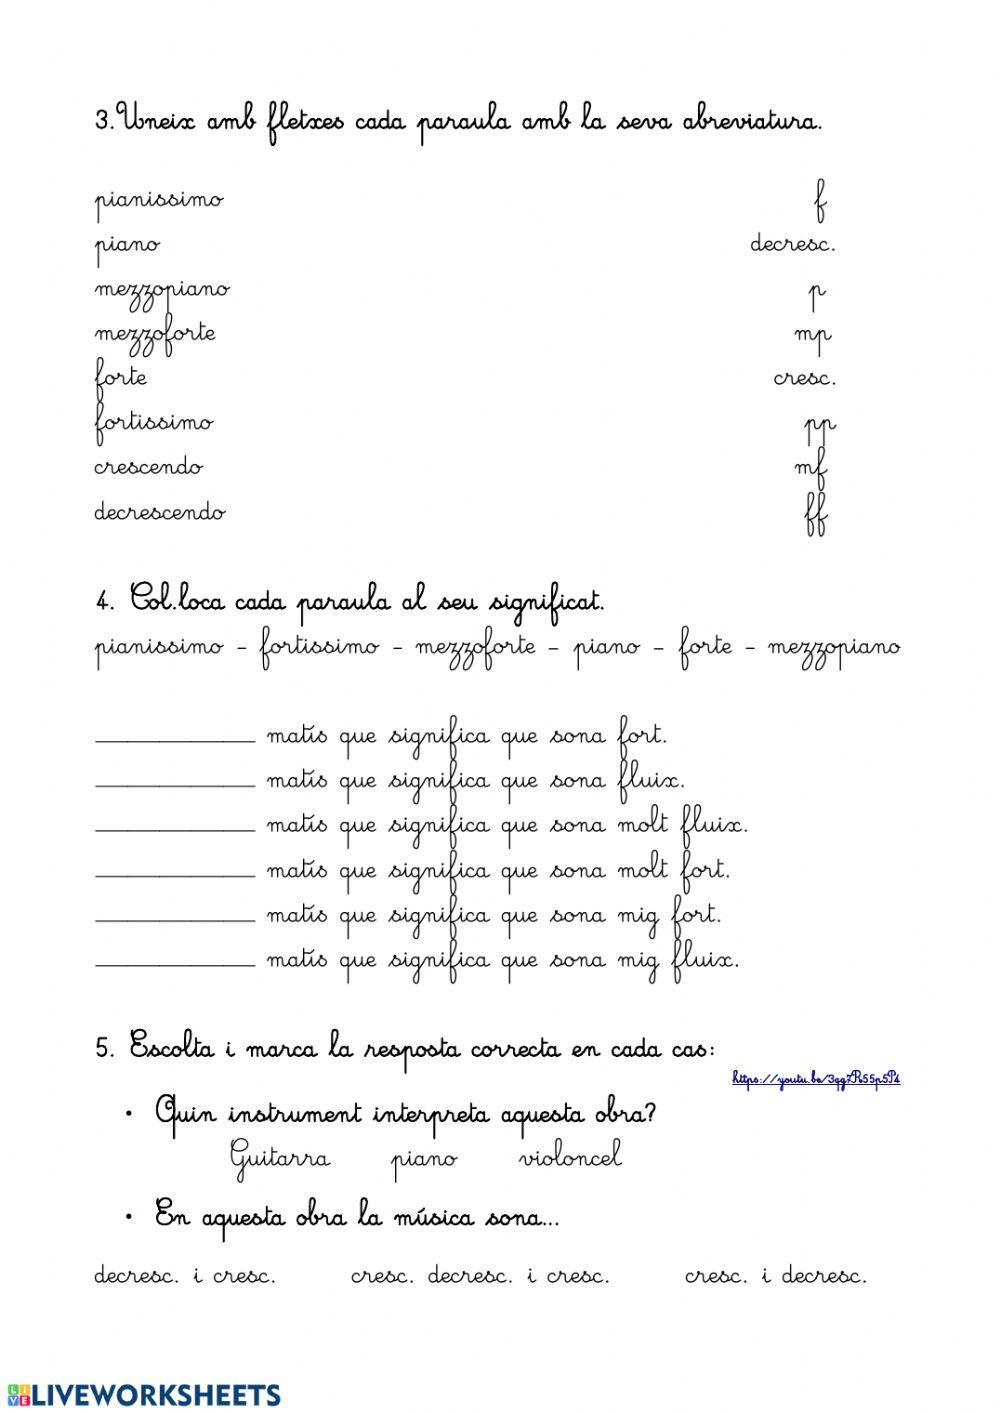 3.Uneix amb fletxes cada paraula amb la seva abreviatura.
pianissimo f
piano decresc.
mezzopiano p
mezzoforte mp
forte cresc.
fortissimo pp
crescendo mf
decrescendo ff
4. Col.loca cada paraula al seu significat.
pianissimo - fortissimo - mezzoforte - piano - forte - mezzopiano
____________ matís que significa que sona fort.
____________ matís que significa que sona fluix.
____________ matís que significa que sona molt fluix.
____________ matís que significa que sona molt fort.
____________ matís que significa que sona mig fort.
____________ matís que significa que sona mig fluix.
5. Escolta i marca la resposta correcta en cada cas:
https://youtu.be/3qg7R55p5P4
• Quin instrument interpreta aquesta obra?
Guitarra piano violoncel
• En aquesta obra la música sona...
decresc. i cresc. cresc. decresc. i cresc. cresc. i decresc.
LIVEWORKSHEETS